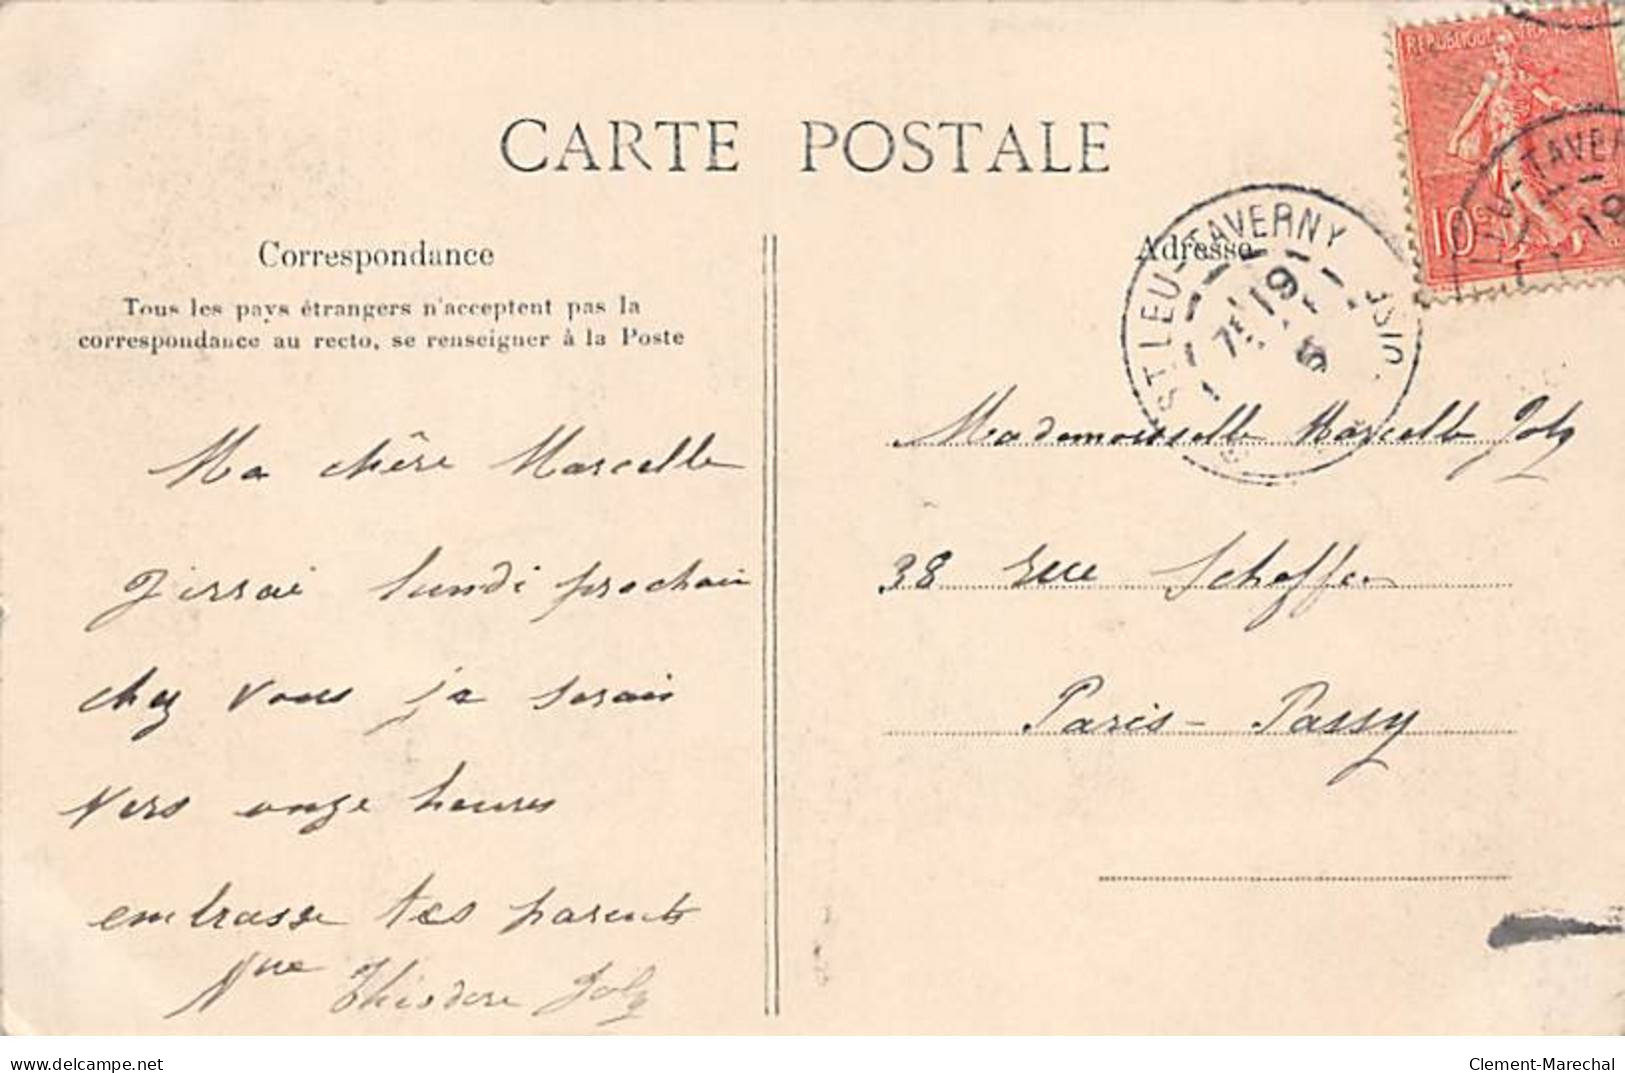 CARTE POSTALE
Correspondance
Tous les pays étrangers n'acceptent pas la
correspondance au recto, se renseigner à la Poste
Ma chère Marcelle
J'irrai lundi prochain
chez vous je serais
vers onze heures
embrasse tes parents
Théodore Joly
Adresse
REPUBLIQUE FRANÇAISE
10
ST LEU-TAVERNY
19
Mademoiselle Marcelle Joly
38 rue Scheffer
Paris-Passy
delcampe.net
Clement-Marechal